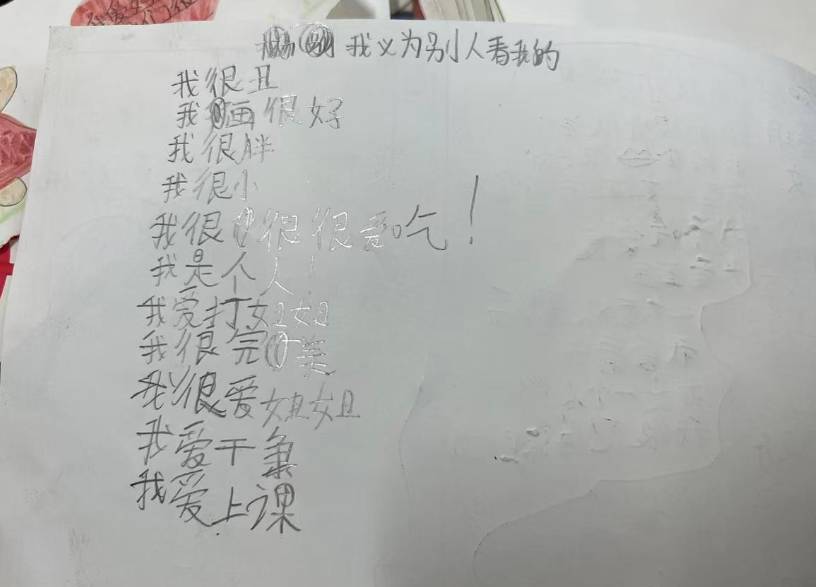 我义为别人看我的
我很丑
我画很好
我很胖
我很小
我很很很爱吃！
我是个人！
我爱打姐姐
我很完美
我很爱姐姐
我爱干
我爱上课